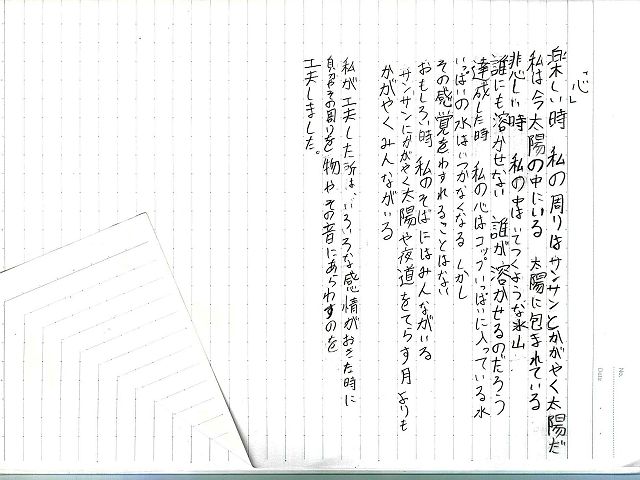 「心」
楽しい時 私の周りはサンサンとかがやく太陽だ
私は今太陽の中にいる 太陽に包まれている
悲しい時 私の中はいてつくような氷山
誰にも溶かせない 誰が溶かせるのだろう
達成した時 私の心はコップいっぱいに入っている水
いっぱいの水はいつかなくなる しかし
その感覚をわすれることはない
おもしろい時 私のそばにはみんながいる
サンサンにかがやく太陽や夜道をてらす月よりも
かがやくみんながいる
私が工夫した所は、いろいろな感情がおきた時に
その周りを物やその音にあらわすのを
工夫しました。
No.
Date